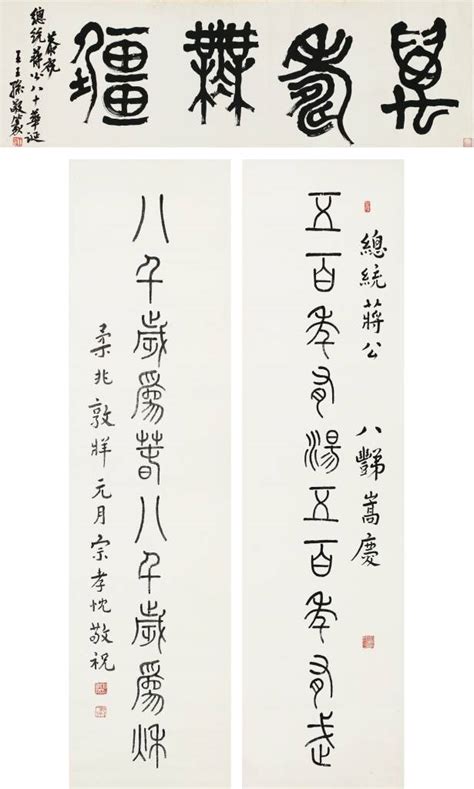 萬壽無疆
恭祝
總統蔣公八十華誕
王王孫敬篆
總統蔣公 八豑嵩慶
五百年有湯五百年有武
八千歲爲春八千歲爲秋
柔兆敦牂元月宗孝忱敬祝